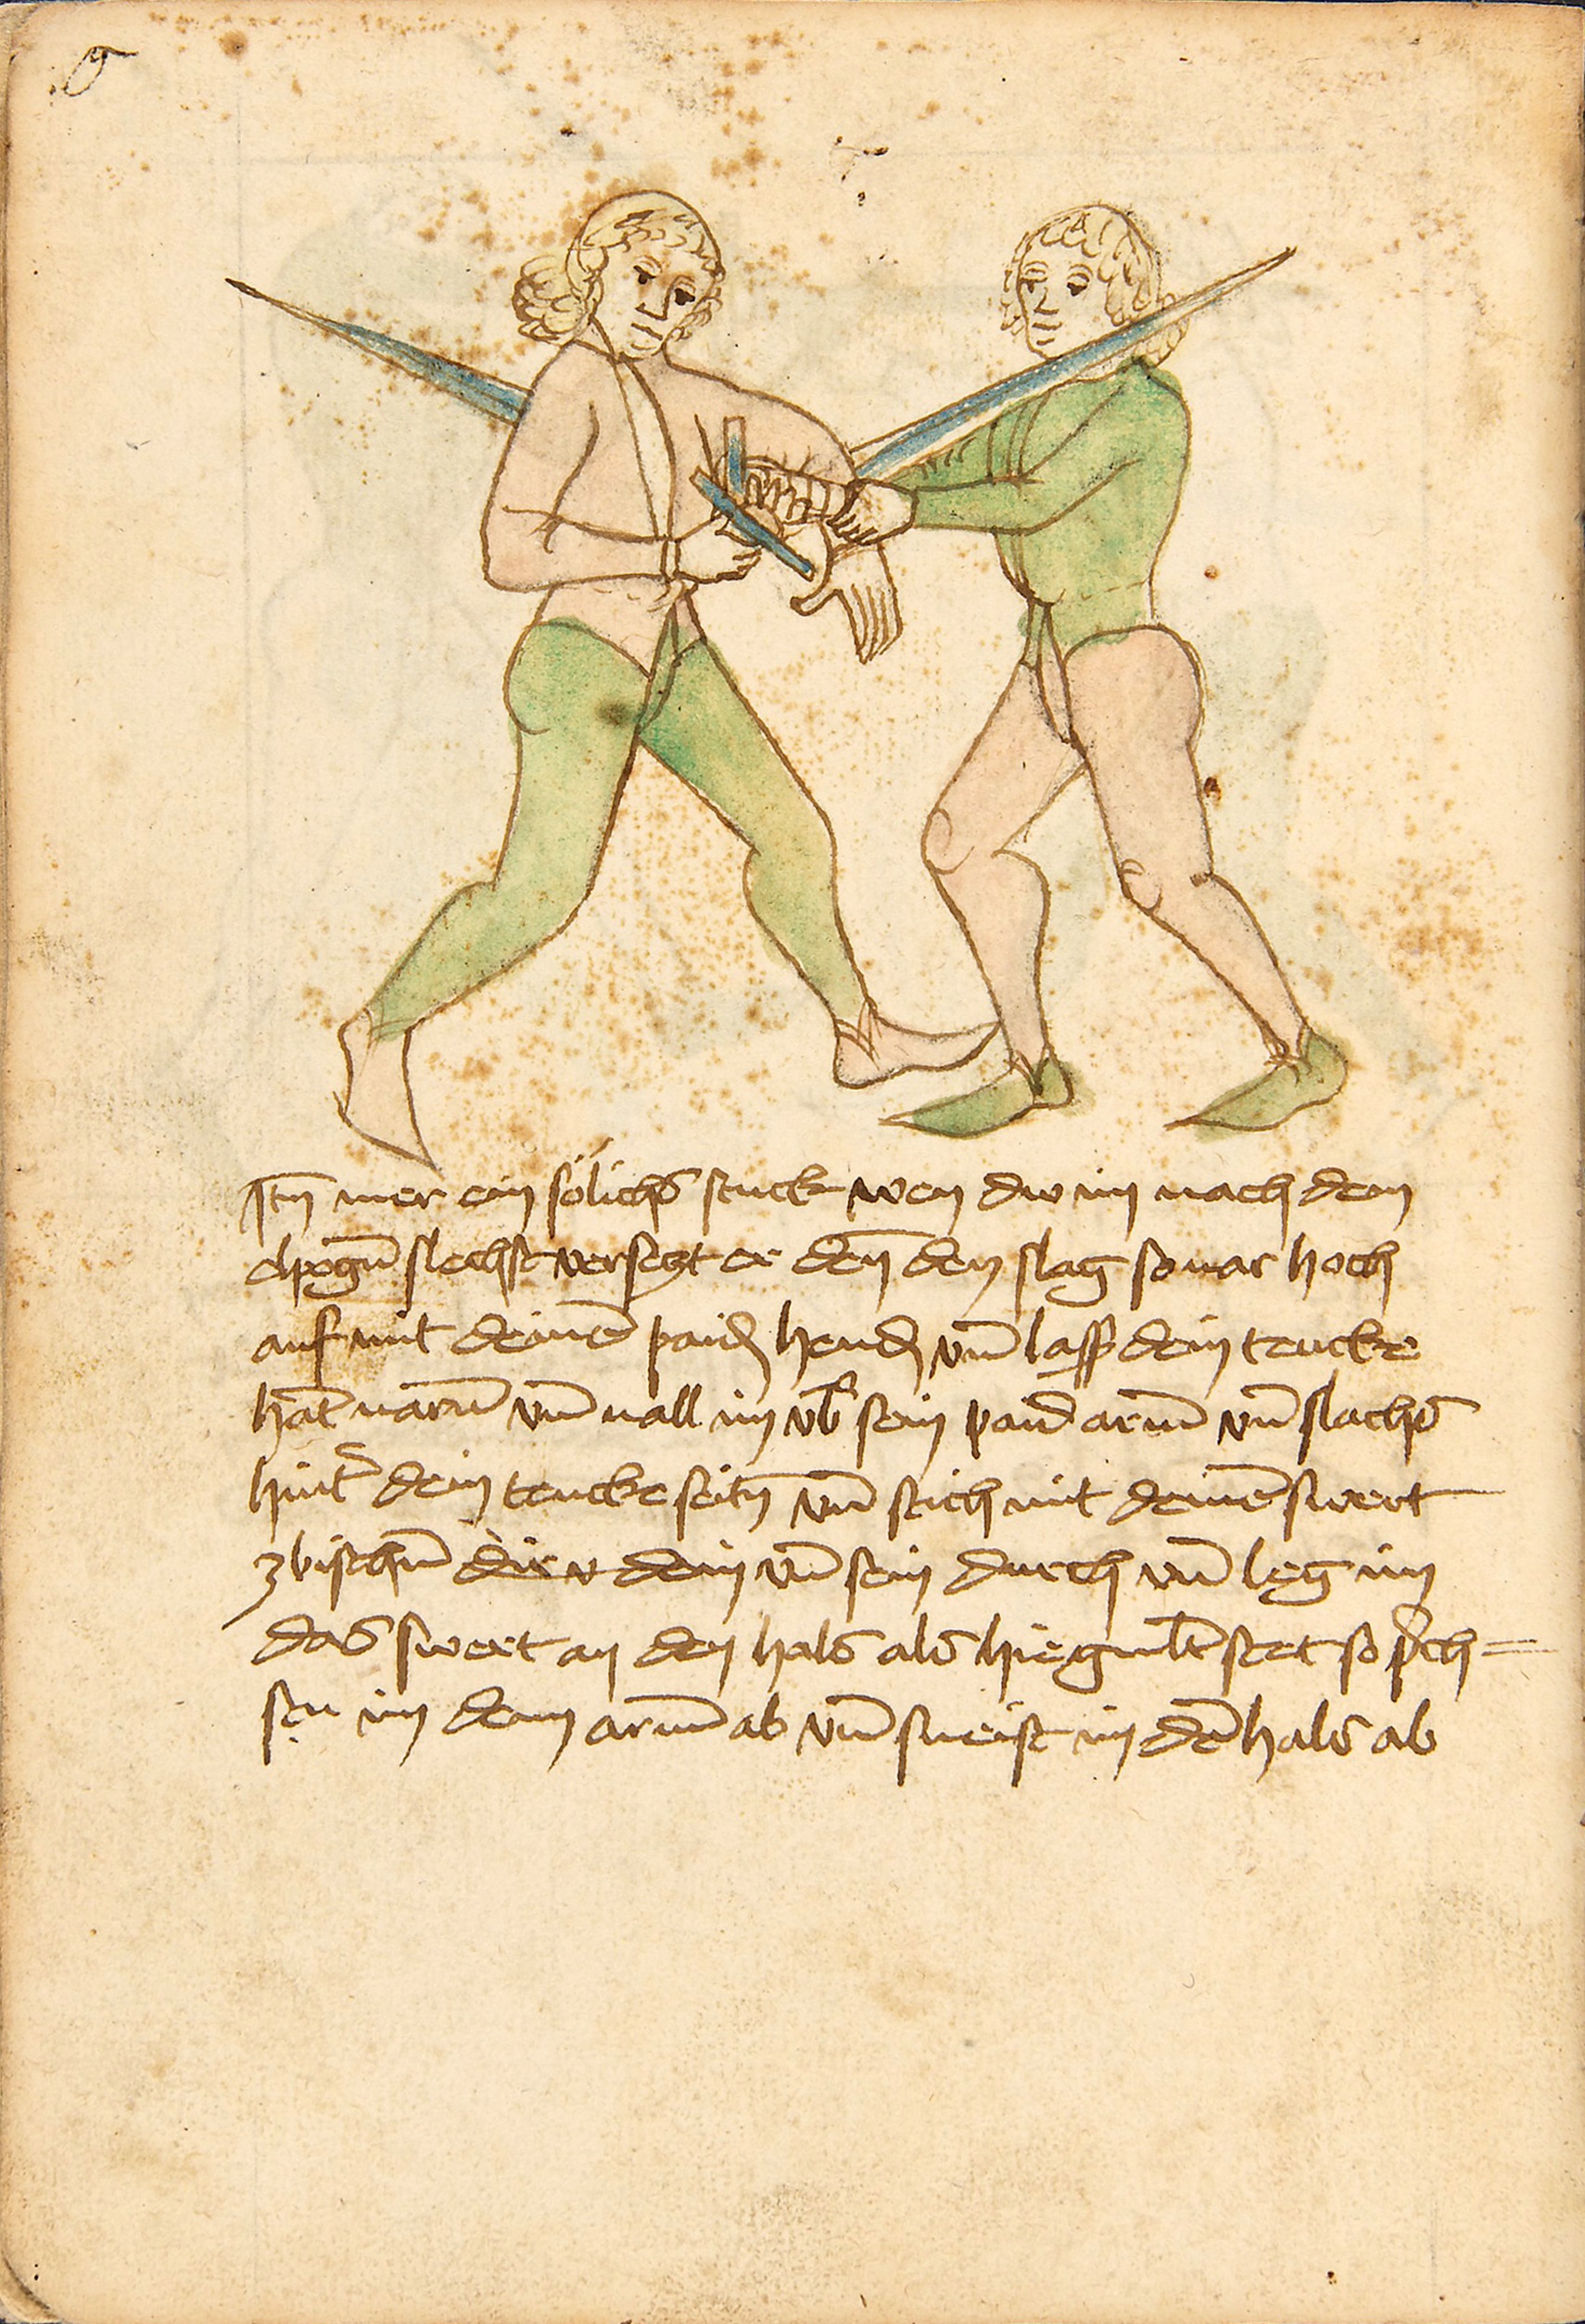 Itm̄ mer ein sölichs stuck wen dw im nach dem
chpogn̄ slechst verseczt er den̄ den slag so uar hoch
auf mit deinē paidn hendn vn̄ lass dein tencke
hāt uarn̄ vn̄ uall im vb̄ sein paid arm̄ vn̄ slachs
hint̄ dein tencke seitn vn̄ stich mit deinē swert
zbischn̄ dir v dein vn̄ sein durch vn̄ leg im
das swert an den hals als hie gmolt stet so prich=
stu im dem arm̄ ab vn̄ sneist im dē hals ab